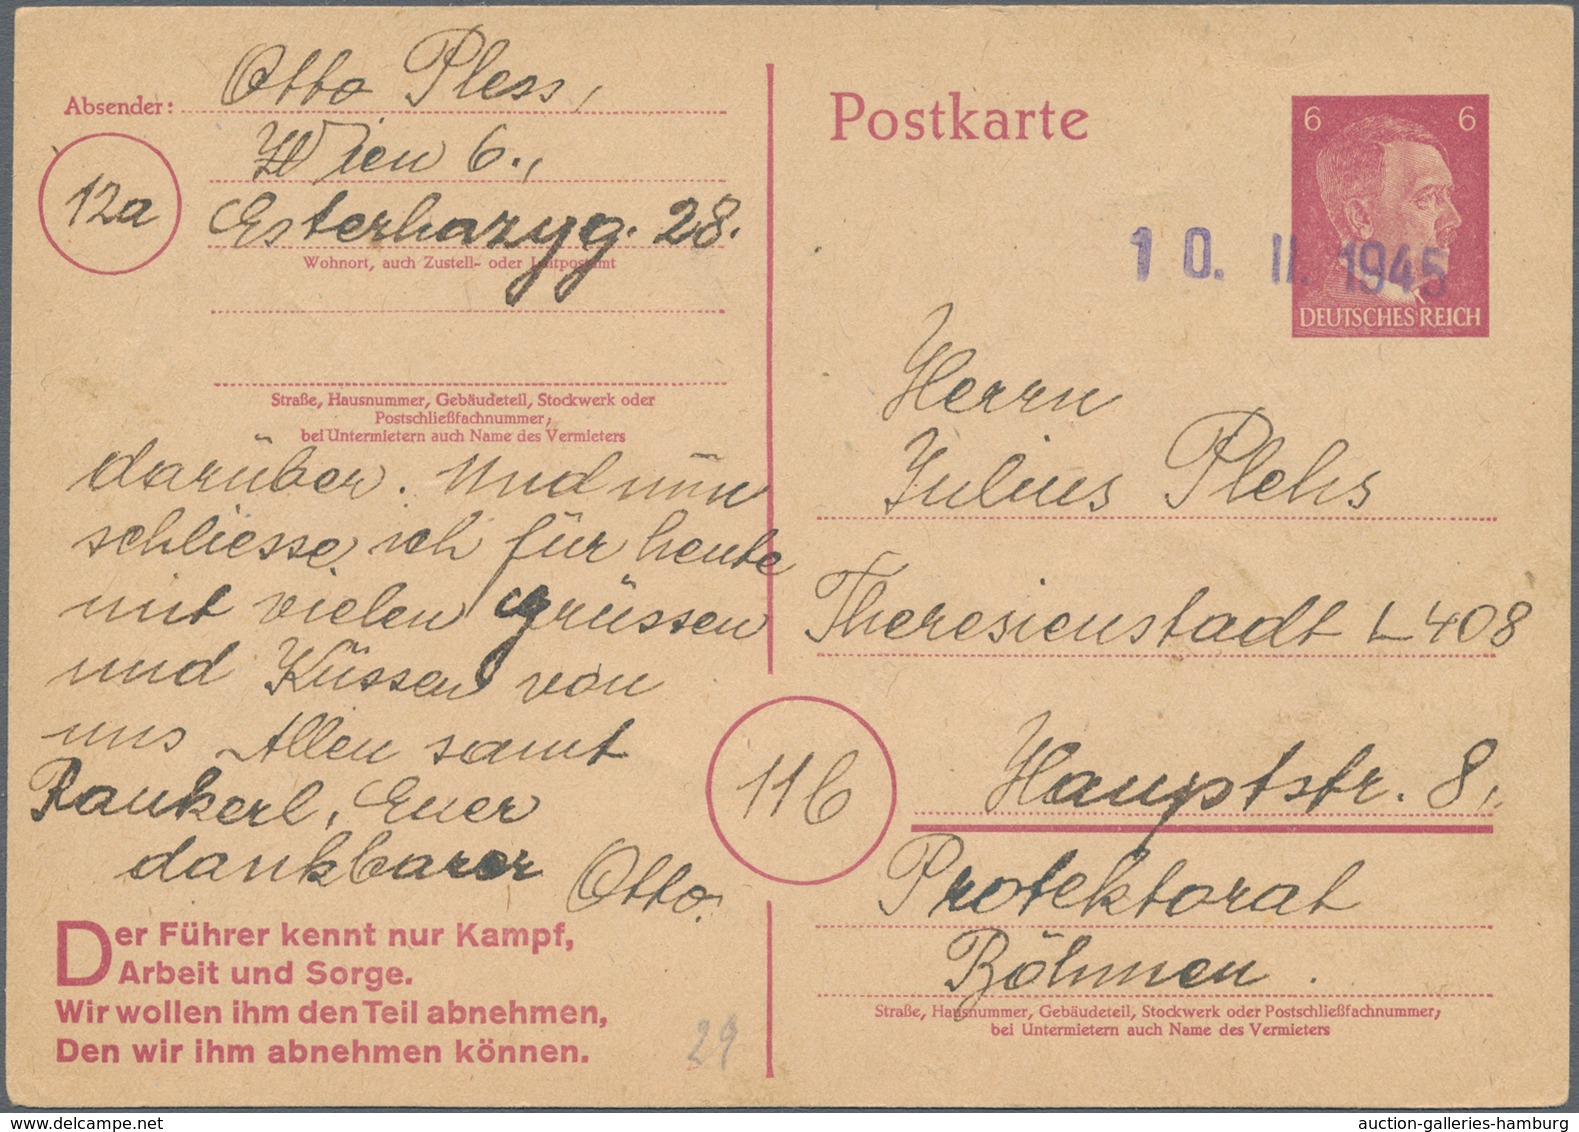 Absender: Otto Pless,
Wien 6.,
12a
Esterhazyg. 28.
Wohnort, auch Zustell- oder Leitpostamt
Straße, Hausnummer, Gebäudeteil, Stockwerk oder
Postschließfachnummer,
bei Untermietern auch Name des Vermieters
darüber. Und nun
schliesse ich für heute
mit vielen Grüssen
und Küssen von
uns Allen samt
Rankerl, Euer
dankbarer Otto.
Der Führer kennt nur Kampf,
Arbeit und Sorge.
Wir wollen ihm den Teil abnehmen,
Den wir ihm abnehmen können.
29
Postkarte
6 6
DEUTSCHES REICH
10. II. 1945
Herrn
Julius Plehs
Theresienstadt L408
11b
Hauptstr. 8,
Protektorat
Böhmen.
Straße, Hausnummer, Gebäudeteil, Stockwerk oder Postschließfachnummer,
bei Untermietern auch Name des Vermieters
auction-galleries-hamburg